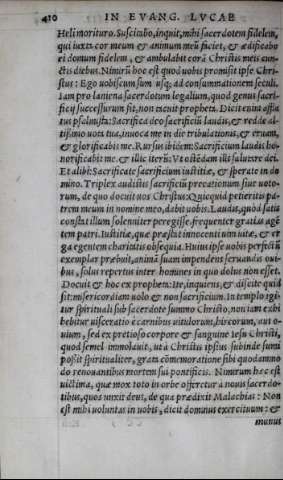 410 IN EVANG. LVCAE
Heli morituro. Suscitabo, inquit, mihi sacerdotem fidelem,
qui iuxta cor meum & animum meū faciet, & ædificabo
ei domum fidelem, & ambulabit corā Christis meis cun-
ctis diebus. Nimirū hoc est quod uobis promisit ipse Chri-
stus: Ego uobiscum sum usq; ad consummationem seculi.
Iam pro laniena sacerdotum legalium, quod genus sacri-
ficij successurum sit, non tacuit propheta. Dicit enim afflа
tus psalmista: Sacrifica deo sacrificiū laudis, & redde al-
tissimo uota tua, inuoca me in die tribulationis, & eruam,
& glorificabis me. Rursus ibidem: Sacrificium laudis ho-
norificabit me. & illic iter: Vt ostēdam illi salutare dei.
Et alibi: Sacrificate sacrificium iustitiæ, & sperate in do
mino. Triplex audistis sacrificiū precationum siue uoto-
rum, de quo docuit nos Christus: Quicquid petieritis pa-
trem meum in nomine meo, dabit uobis. Laudis, quod satis
constat illum solenniter peregisse, frequenter gratias agē
tem patri. Iustitiæ, quæ præstat innocentiam uitæ, & er
ga egentem charitatis obsequia. Huius ipse uobis perfectū
exemplar præbuit, animā suam impendens seruandis oui-
bus, solus repertus inter homines in quo dolus non esset.
Docuit & hoc ex propheta: Ite, inquiens, & discite quid
sit: misericordiam uolo & non sacrificium. In templo igi-
tur spirituali sub sacerdote summo Christo, non iam exhi
bebitur uisceratio è carnibus uitulorum, hircorum, aut o-
uium, sed ex pretioso corpore & sanguine Iesu Christi,
quod semel immolauit, ut à Christis ipsius subinde sumi
possit spiritualiter, grata cōmemoratione sibi quodammo
do renouantibus mortem sui pontificis. Nimirum hæc est
uictima, quæ mox toto in orbe offeretur à nouis sacerdo-
tibus, quos unxit deus, de qua prædixit Malachias: Non
est mihi uoluntas in uobis, dicit dominus exercituum: &
munus